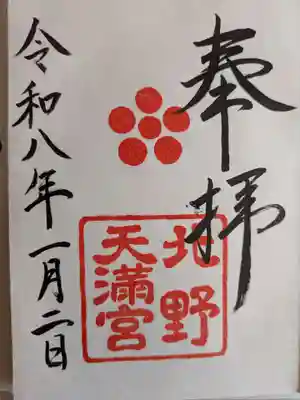 奉拝
北野
天満宮
令和八年一月二日